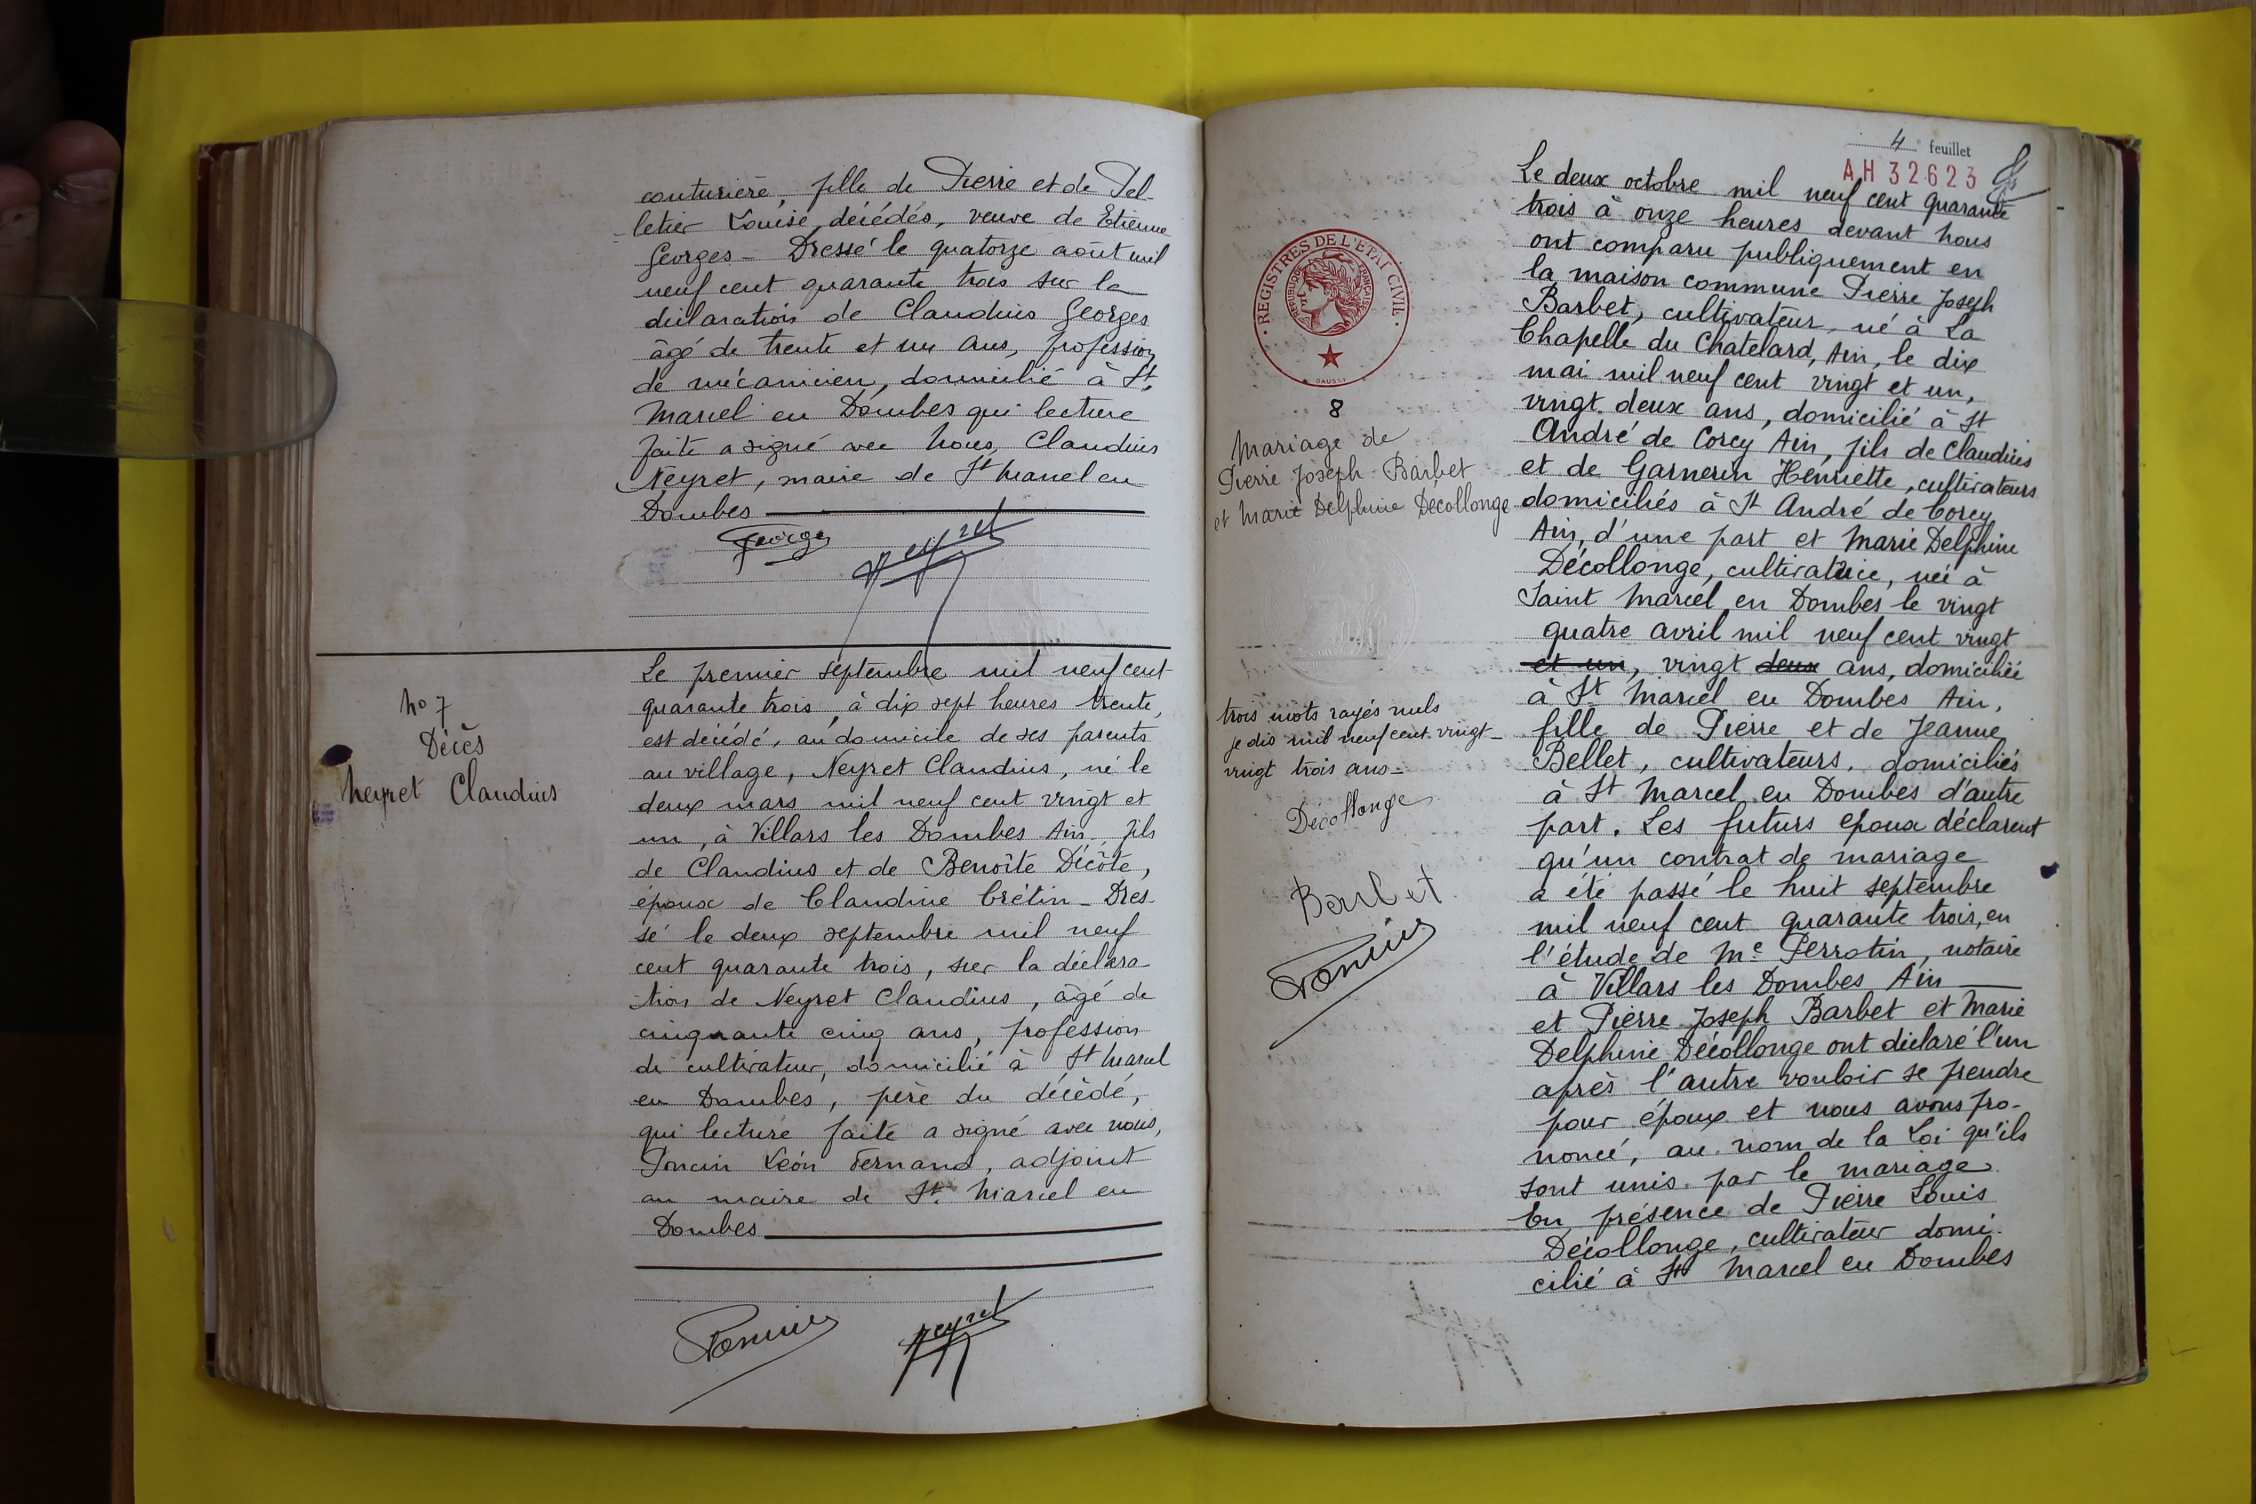 couturière, fille de Pierre et de Pel-
letier Louise, décédés, veuve de Etienne
Georges - Dressé le quatorze août mil
neuf cent quarante trois sur la
déclaration de Claudius Georges
âgé de trente et un ans, profession
de mécanicien, domicilié à St
Marcel en Dombes qui lecture
faite a signé avec Nous, Claudius
Neyret, maire de St Marcel en
Dombes
Georges
Neyret
No 7
Décès
Neyret Claudius
Le premier septembre mil neuf cent
quarante trois, à dix sept heures trente,
est décédé, au domicile de ses parents
au village, Neyret Claudius, né le
deux mars mil neuf cent vingt et
un, à Villars les Dombes Ain, fils
de Claudius et de Benoîte Décôte,
époux de Claudine Crétin - Dres-
sé le deux septembre mil neuf
cent quarante trois, sur la déclara-
tion de Neyret Claudius, âgé de
cinquante cinq ans, profession
de cultivateur, domicilié à St Marcel
en Dombes, père du décédé,
qui lecture faite a signé avec nous,
Poncin Léon Fernand, adjoint
au maire de St Marcel en
Dombes
Poncin
Neyret
4e feuillet
AH 32623
REGISTRES DE L'ETAT CIVIL
REPUBLIQUE FRANÇAISE
DAUSSY
8
Mariage de
Pierre Joseph Barbet
et Marie Delphine Décollonge
trois mots rayés nuls
je dis mil neuf cent vingt -
vingt trois ans -
Décollonge
Barbet
Poncin
Le deux octobre mil neuf cent quarante
trois à onze heures devant Nous
ont comparu publiquement en
la maison commune Pierre Joseph
Barbet, cultivateur, né à La
Chapelle du Chatelard, Ain, le dix
mai mil neuf cent vingt et un,
vingt deux ans, domicilié à St
André de Corcy Ain, fils de Claudius
et de Garnerin Henriette, cultivateurs
domiciliés à St André de Corcy
Ain, d'une part et Marie Delphine
Décollonge, cultivatrice, née à
Saint Marcel en Dombes le vingt
quatre avril mil neuf cent vingt
et un, vingt deux ans, domiciliée
à St Marcel en Dombes Ain,
fille de Pierre et de Jeanne
Bellet, cultivateurs, domiciliés
à St Marcel en Dombes d'autre
part. Les futurs epoux déclarent
qu'un contrat de mariage
a été passé le huit septembre
mil neuf cent quarante trois, en
l'étude de Me Perrotin, notaire
à Villars les Dombes Ain
et Pierre Joseph Barbet et Marie
Delphine Décollonge ont déclaré l'un
après l'autre vouloir se prendre
pour époux et nous avons pro-
noncé, au nom de la Loi qu'ils
sont unis par le mariage
En présence de Pierre Louis
Décollonge, cultivateur domi-
cilié à St Marcel en Dombes